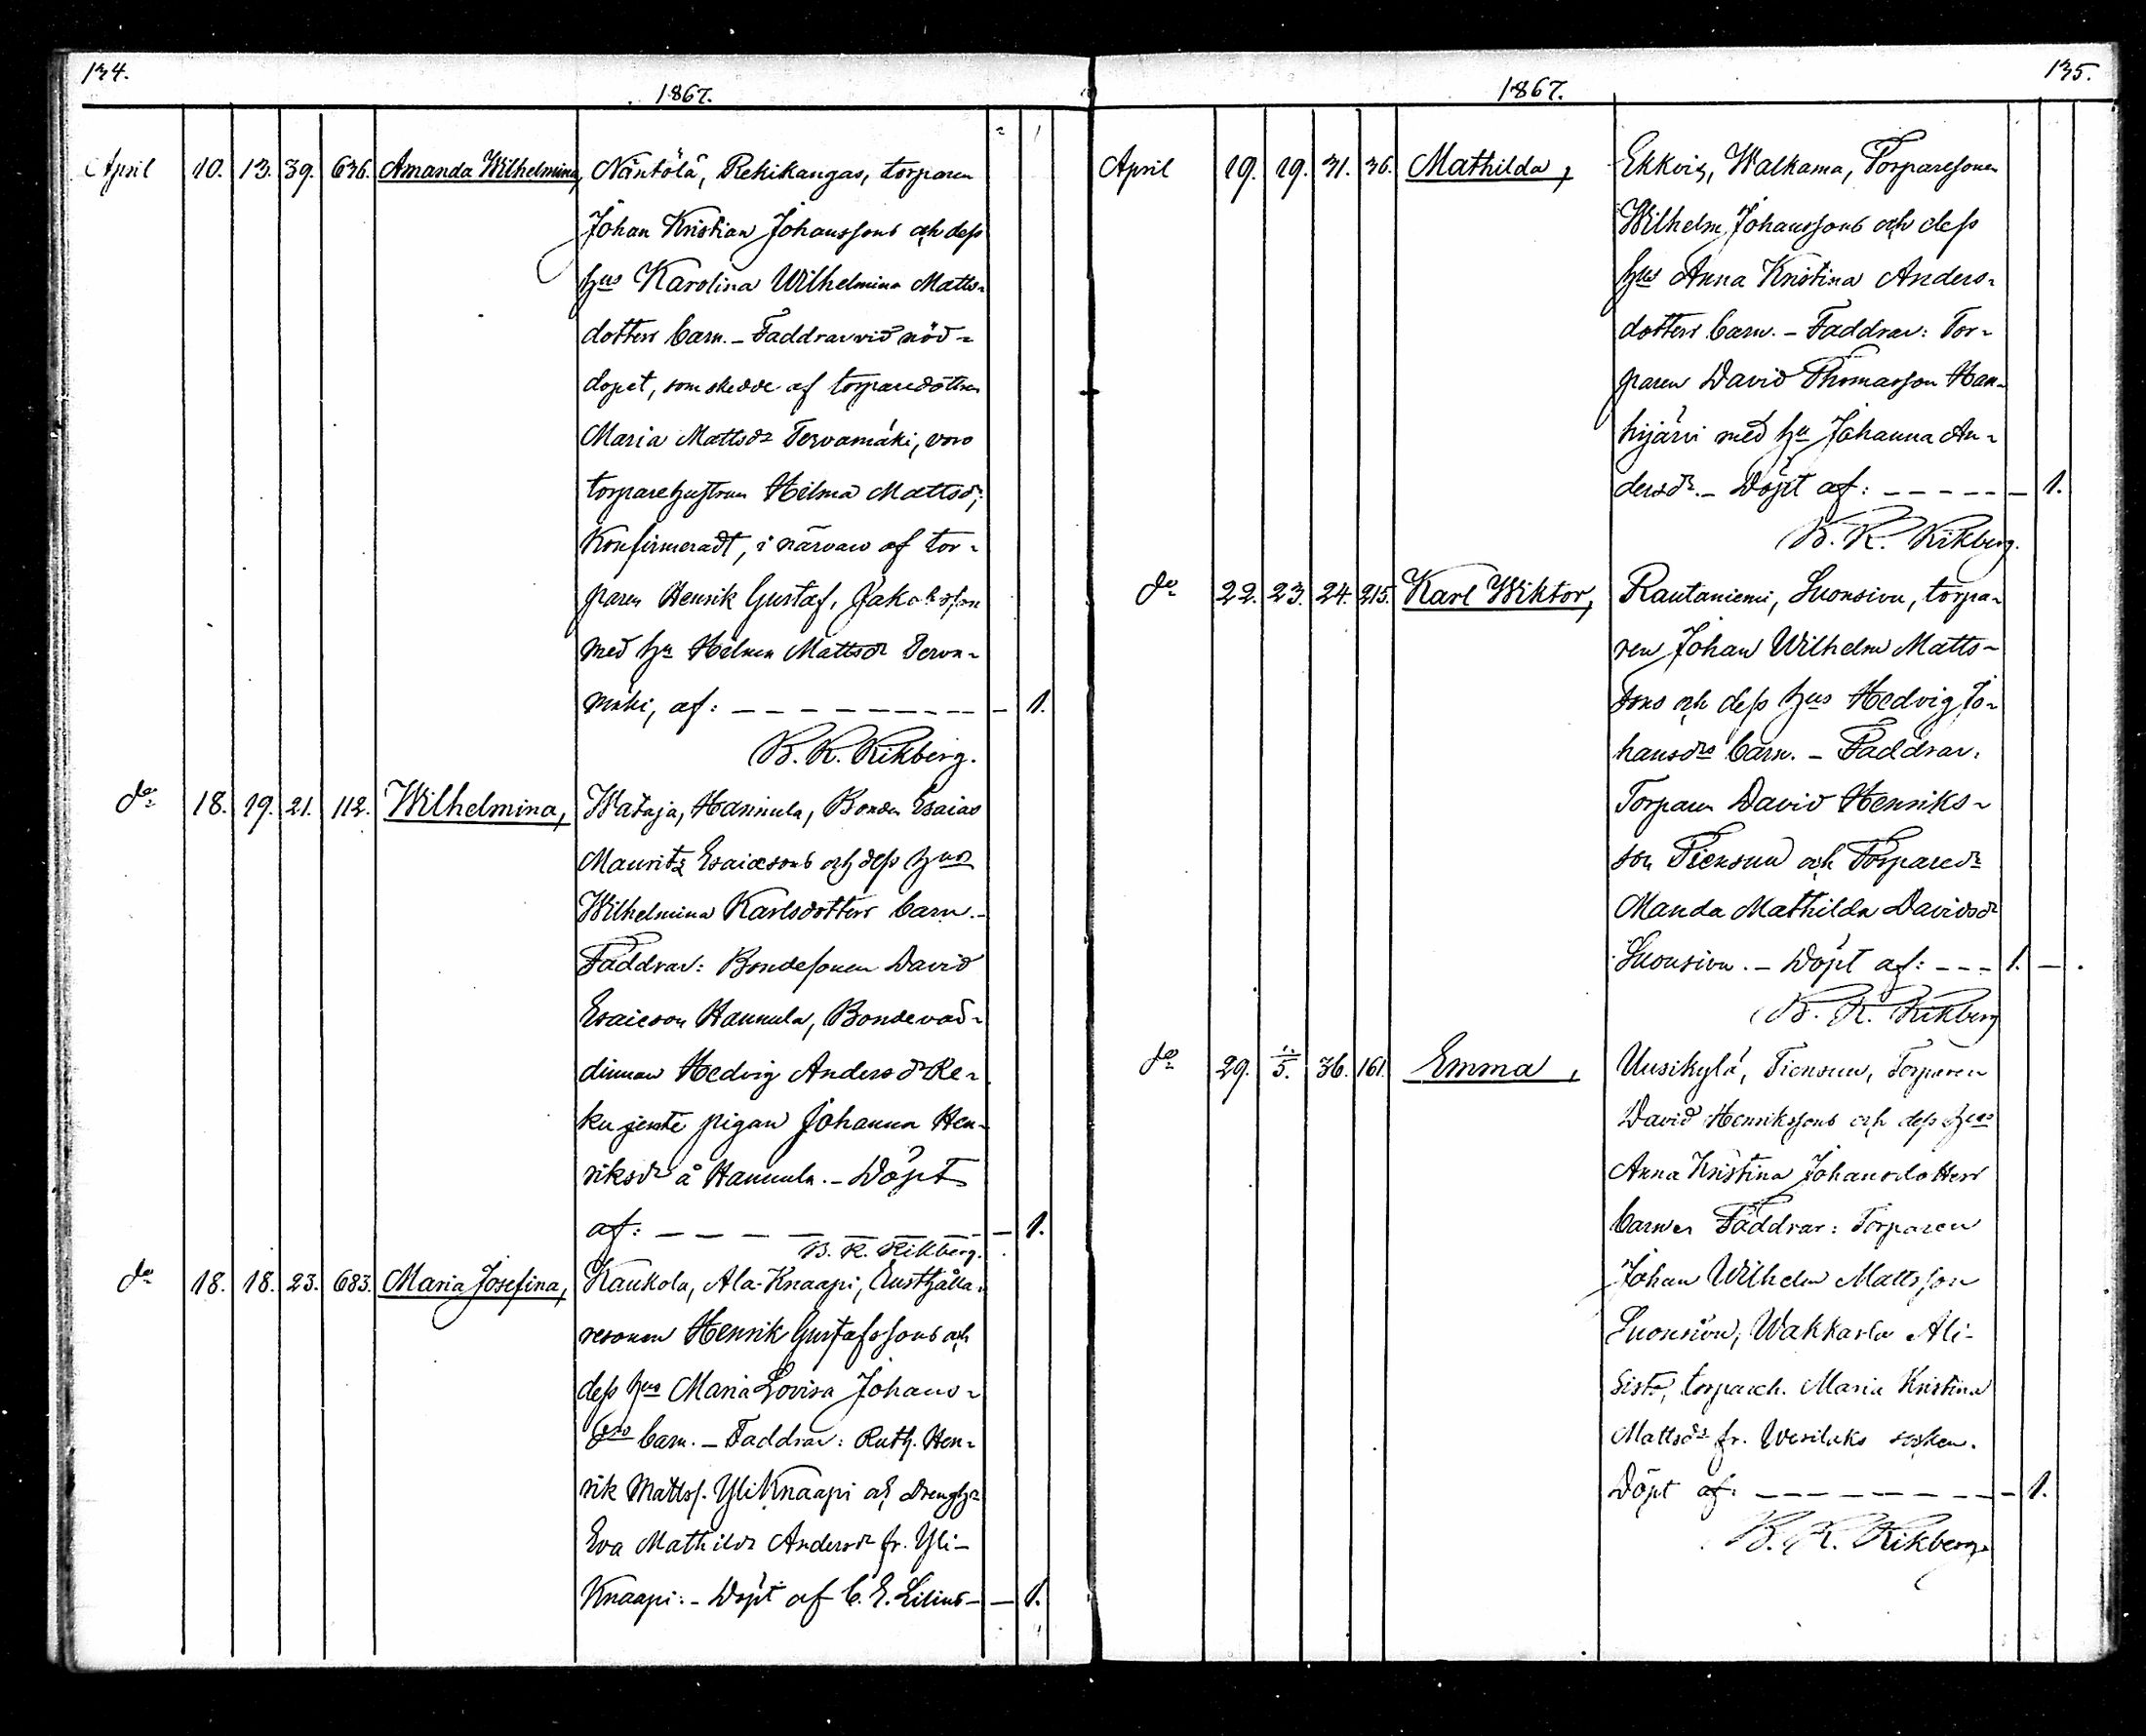 134.
1867.
April 10. 13. 39. 636. Amanda Wilhelmina, Näntölä, Rekikangas, torparen
Johan Kristian Johanssons och dess
hus Karolina Wilhelmina Matts-
dotters barn. – Faddrar vid nöd-
dopet, som skedde af torparedottren
Maria Mattsdr Tervamäki, voro
torparehustrun Hilma Mattsdr;
Konfirmeradt, i närvaro af tor-
paren Henrik Gustaf Jakobsson
med hu Hilma Mattsdr Terva-
mäki, af: – – – – – – – – – – 1.
B. K. Rikberg.
do 18. 19. 21. 112. Wilhelmina, Wataja, Hannula, Bonden Esaias
Mauritz Esaiæsons och dess hus
Wilhelmina Karlsdotters barn. –
Faddrar: Bondesonen David
Esaieson Hannula, Bondevär-
dinnan Hedvig Andersdr Re-
ku jemte pigan Johanna Hen-
riksdr å Hannula. – Döpt
af: – – – – – – – – 1.
B. K. Rikberg.
do 18. 18. 23. 683. Maria Josefina, Kaukola, Ala-Knaapi, Rusthålla-
resonen Henrik Gustafssons och
dess hus Maria Lovisa Johans-
drs barn. – Faddrar: Rusth. Hen-
rik Mattss. Yli Knaapi och drengh.
Eva Mathilda Andersdr fr. Yli-
Knaapi. – Döpt af C. E. Lilius – – 1.
135.
1867.
April 19. 19. 31. 36. Mathilda, Ekkois, Walkama, Torparesonen
Wilhelm Johanssons och dess
hus Anna Kristina Anders-
dotters barn. – Faddrar: Tor-
paren David Thomasson Han-
hijärvi med hu Johanna An-
dersdr. – Döpt af: – – – – – – 1.
B. K. Rikberg.
do 22. 23. 24. 215. Karl Wiktor, Rautaniemi, Suonsivu, torpa-
ren Johan Wilhelm Matts-
sons och dess hus Hedvig Jo-
hansdrs barn. – Faddrar.
Torparen David Henriks-
son Tiensuu och Torparedr
Manda Mathilda Davidsdr
Suonsivu. – Döpt af: – – – 1. –
B. K. Rikberg
do 29. 5. 36. 161. Emma, Uusikylä, Tiensuu, Torparen
David Henrikssons och dess hus
Anna Kristina Johansdotters
barn Faddrar: Torparen
Johan Wilhelm Mattsson
Suonsivu, Wakkarla Ali-
Sisto, torpareh. Maria Kristina
Mattsdr fr. Wesilaks socken.
Döpt af: – – – – – – – – 1.
B. K. Rikberg.